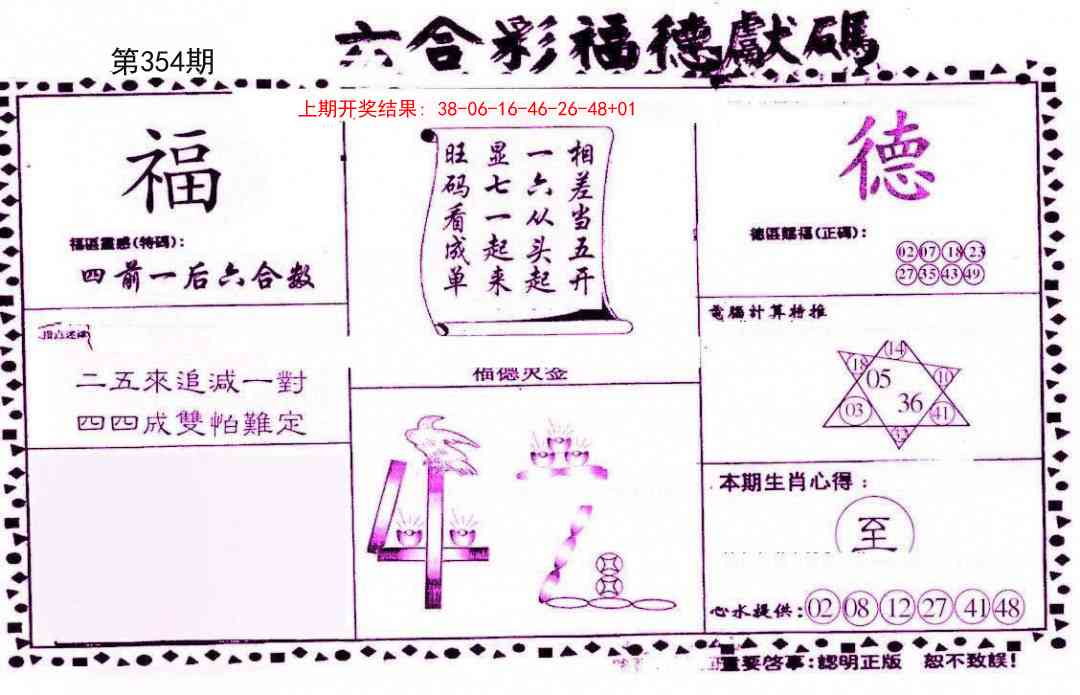 六合彩福德獻碼
第354期
上期开奖结果：38-06-16-46-26-48+01
福
福區靈感(特碼)：
四前一后六合数
二五來追减一對
四四成雙怕難定
相差当五开
一六从头起
显七一起来
旺码看成单
福德灵金
德
德區賜福(正碼)：
02 07 18 23
27 35 43 49
電腦計算特推
14
18 10
05
36
03 41
32
本期生肖心得：
至
心水提供：02 08 12 27 41 48
重要啓事：認明正版 恕不致誤！